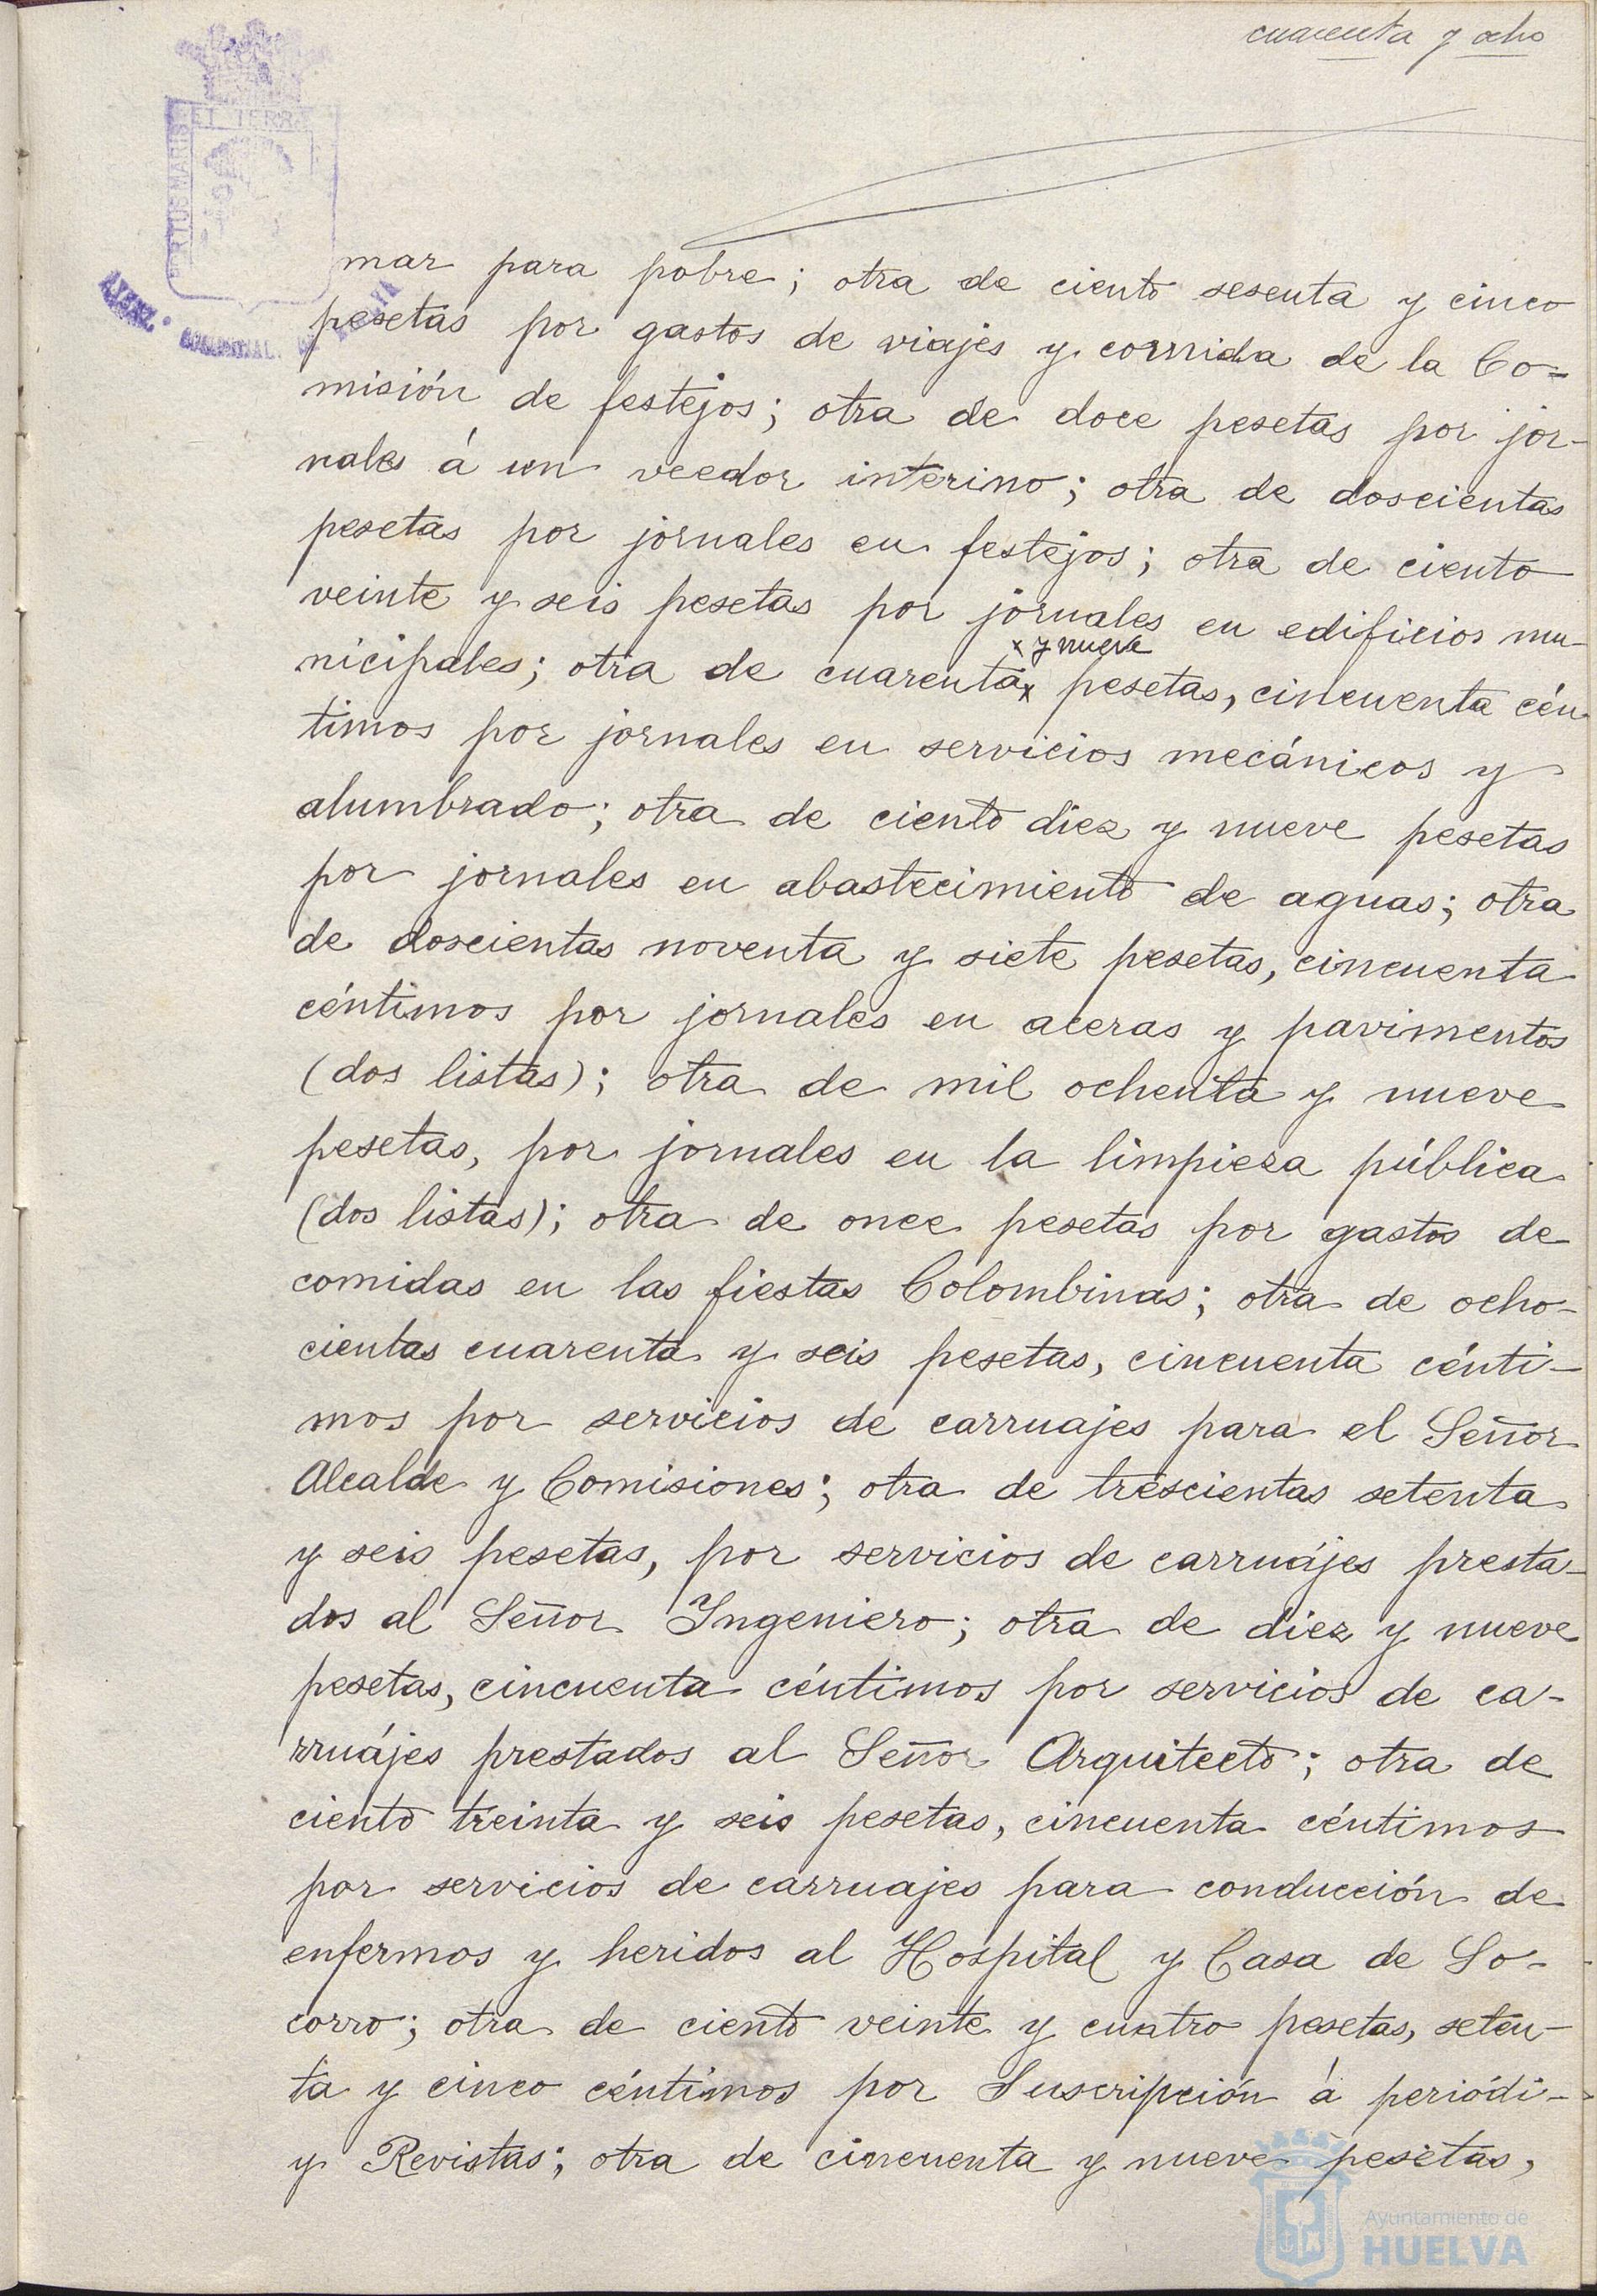 cuarenta y ocho
PORTUS MARIS ET TERRÆ
mar para pobre; otra de ciento sesenta y cinco
pesetas por gastos de viajes y comida de la Co-
misión de festejos; otra de doce pesetas por jor-
nales á un veedor interino; otra de doscientas
pesetas por jornales en festejos; otra de ciento
veinte y seis pesetas por jornales en edificios mu-
x y nueve
nicipales; otra de cuarenta x pesetas, cincuenta cén-
timos por jornales en servicios mecánicos y
alumbrado; otra de ciento diez y nueve pesetas
por jornales en abastecimiento de aguas; otra
de doscientas noventa y siete pesetas, cincuenta
céntimos por jornales en aceras y pavimentos
(dos listas); otra de mil ochenta y nueve
pesetas, por jornales en la limpieza pública
(dos listas); otra de once pesetas por gastos de
comidas en las fiestas Colombinas; otra de ocho-
cientas cuarenta y seis pesetas, cincuenta cénti-
mos por servicios de carruajes para el Señor
Alcalde y Comisiones; otra de trescientas setenta
y seis pesetas, por servicios de carruájes presta-
dos al Señor Ingeniero; otra de diez y nueve
pesetas, cincuenta céntimos por servicios de ca-
rruájes prestados al Señor Arquitecto; otra de
ciento treinta y seis pesetas, cincuenta céntimos
por servicios de carruajes para conducción de
enfermos y heridos al Hospital y Casa de So-
corro; otra de ciento veinte y cuatro pesetas, seten-
ta y cinco céntimos por Suscripción á periódi-
y Revistas; otra de cincuenta y nueve pesetas,
Ayuntamiento de
HUELVA